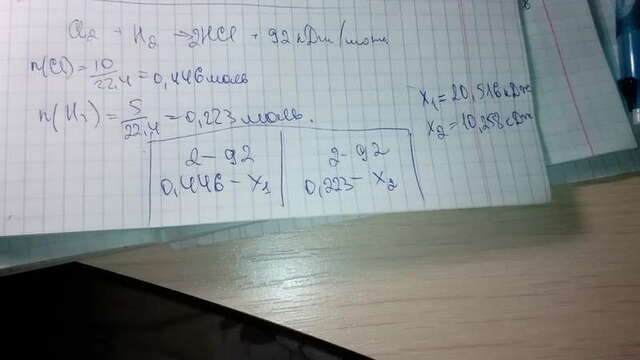 Cl₂ + H₂ → 2HCl + 92 кДж/моль
n(Cl) = 10/22,4 = 0,446 моль
n(H₂) = 5/22,4 = 0,223 моль.
x₁ = 20,516 кДж
x₂ = 10,258 кДж
2 – 92
0,446 – x₁
2 – 92
0,223 – x₂